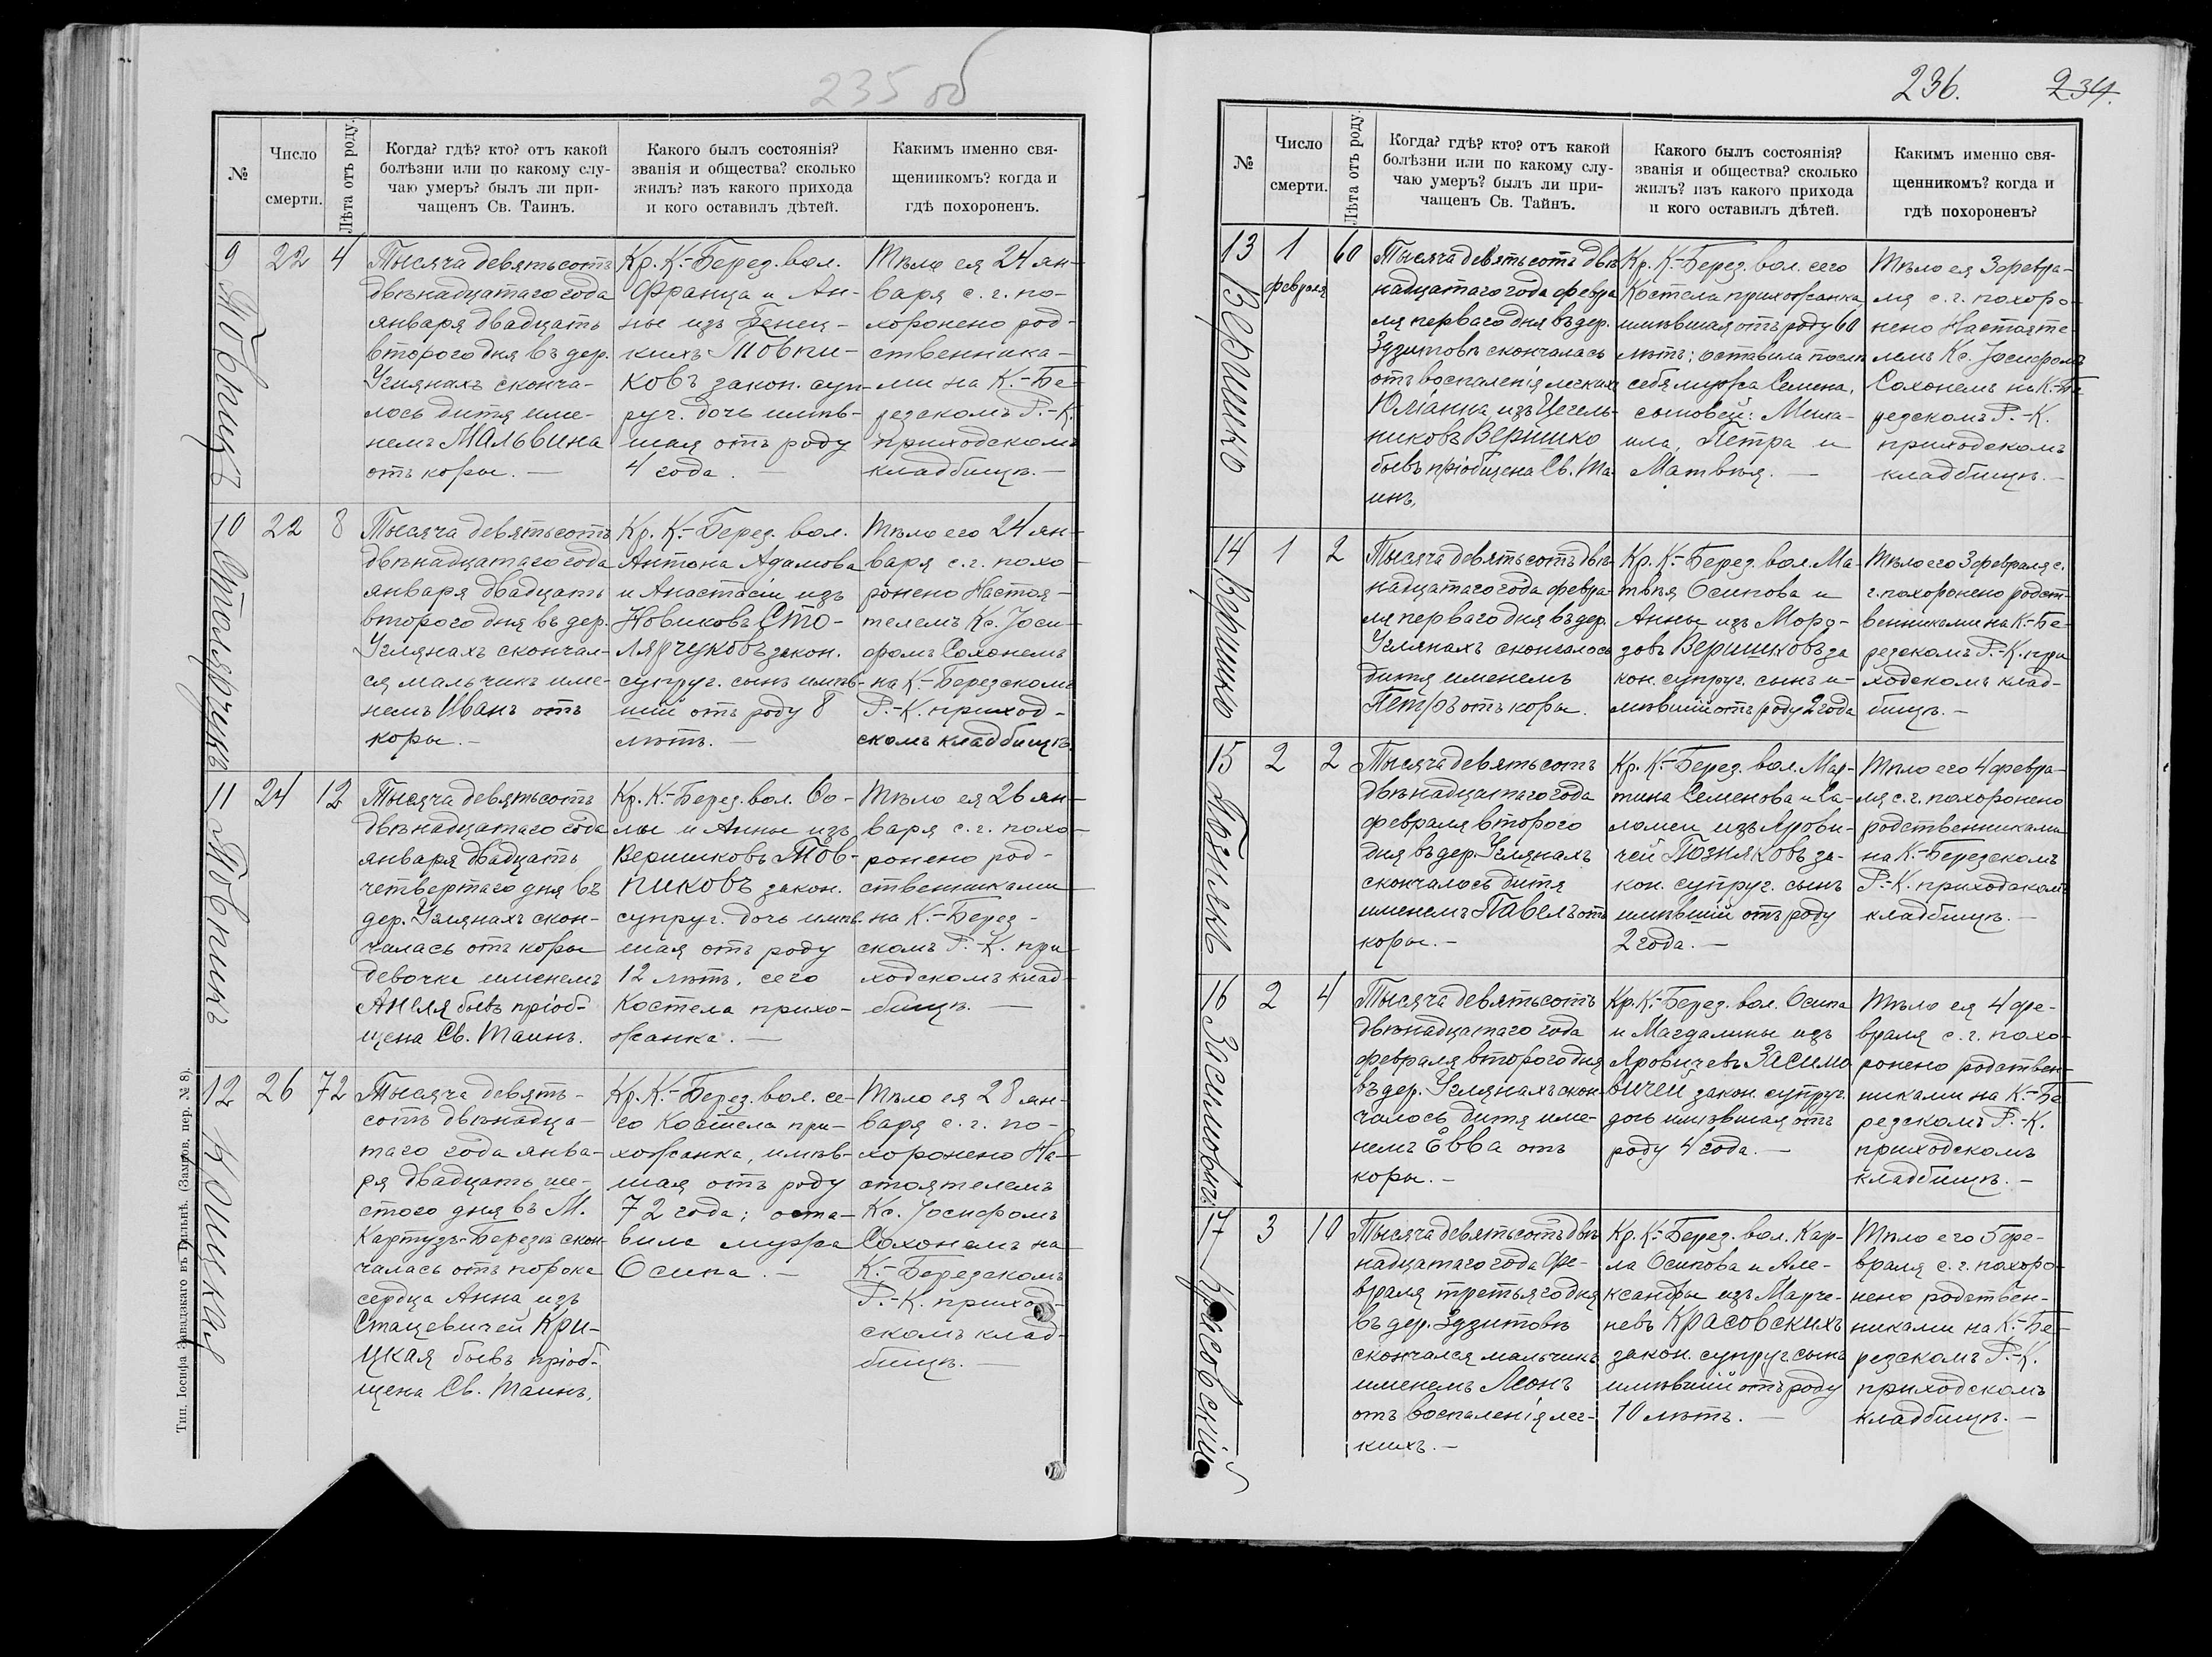 235 об
№
Число
смерти.
Лѣта отъ роду.
Когда? гдѣ? кто? отъ какой
болѣзни или по какому слу-
чаю умеръ? былъ ли при-
чащенъ Св. Таинъ.
Какого былъ состоянія?
званія и общества? сколько
жилъ? изъ какого прихода
и кого оставилъ дѣтей.
Какимъ именно свя-
щенникомъ? когда и
гдѣ похороненъ.
9
Товпикъ
22
4
Тысяча девятьсотъ
двѣнадцатаго года
января двадцать
второго дня въ дер.
Углянахъ сконча-
лось дитя име-
немъ Мальвина
отъ коры. —
Кр. К.-Берез. вол.
Франца и Ан-
ны изъ Бенец-
кихъ Товпи-
ковъ закон. суп-
руг. дочь имѣв-
шая отъ роду
4 года. —
Тѣло ея 24 ян-
варя с. г. по-
хоронено род-
ственника-
ми на К.-Бе-
резскомъ Р.-К.
приходскомъ
кладбищѣ. —
10
Столярчукъ
22
8
Тысяча девятьсотъ
двѣнадцатаго года
января двадцать
второго дня въ дер.
Углянахъ скончал-
ся мальчикъ име-
немъ Иванъ отъ
коры. —
Кр. К.-Берез. вол.
Антона Адамова
и Анастасіи изъ
Новиковъ Сто-
лярчуковъ закон.
супруг. сынъ имѣв-
шій отъ роду 8
лѣтъ. —
Тѣло его 24 ян-
варя с. г. похо-
ронено Настоя-
телемъ Кс. Іоси-
фомъ Сохонемъ
на К.-Березскомъ
Р.-К. приход-
скомъ кладбищѣ.
11
Товпикъ
24
12
Тысяча девятьсотъ
двѣнадцатаго года
января двадцать
четвертаго дня въ
дер. Углянахъ скон-
чалась отъ коры
девочка именемъ
Анеля бывъ пріоб-
щена Св. Таинъ.
Кр. К.-Берез. вол. Ѳо-
мы и Анны изъ
Веришковъ Тов-
пиковъ закон.
супруг. дочь имѣв-
шая отъ роду
12 лѣтъ, сего
Костела прихо-
жанка. —
Тѣло ея 26 ян-
варя с. г. похо-
ронено род-
ственниками
на К.-Берез-
скомъ Р.-К. при-
ходскомъ клад-
бищѣ. —
12
Крицкая
26
72
Тысяча девять-
сотъ двѣнадца-
таго года янва-
ря двадцать ше-
стого дня въ М.
Картузъ-Березѣ скон-
чалась отъ порока
сердца Анна изъ
Стацевичей Кри-
цкая бывъ пріоб-
щена Св. Таинъ.
Кр. К.-Берез. вол. се-
го Костела при-
хожанка, имѣв-
шая отъ роду
72 года; оста-
вила мужа
Осипа. —
Тѣло ея 28 ян-
варя с. г. по-
хоронено На-
стоятелемъ
Кс. Іосифомъ
Сохонемъ на
К.-Березскомъ
Р.-К. приход-
скомъ клад-
бищѣ. —
Тип. Іосифа Завадзкаго въ Вильнѣ. (Замков. пер. № 8).
236.
234.
№
Число
смерти.
Лѣта отъ роду.
Когда? гдѣ? кто? отъ какой
болѣзни или по какому слу-
чаю умеръ? былъ ли при-
чащенъ Св. Тайнъ.
Какого былъ состоянія?
званія и общества? сколько
жилъ? изъ какого прихода
и кого оставилъ дѣтей.
Какимъ именно свя-
щенникомъ? когда и
гдѣ похороненъ?
13
Веришко
1
февраля
60
Тысяча девятьсотъ двѣ-
надцатаго года февра-
ля перваго дня въ дер.
Здзитовѣ скончалась
отъ воспаленія легкихъ
Юліанна изъ Цегель-
никовъ Веришко
бывъ пріобщена Св. Та-
инъ.
Кр. К.-Берез. вол. сего
Костела прихожанка,
имѣвшая отъ роду 60
лѣтъ; оставила послѣ
себя мужа Семена,
сыновей: Миха-
ила, Петра и
Матвѣя. —
Тѣло ея 3 февра-
ля с. г. похоро-
нено Настояте-
лемъ Кс. Іосифомъ
Сохонемъ на К.-Бе-
резскомъ Р.-К.
приходскомъ
кладбищѣ. —
14
Веришко
1
2
Тысяча девятьсотъ двѣ-
надцатаго года февра-
ля перваго дня въ дер.
Углянахъ скончалось
дитя именемъ
Петръ отъ коры.
Кр. К.-Берез. вол. Ма-
твѣя Осипова и
Анны изъ Моро-
зовъ Веришковъ за-
кон. супруг. сынъ и-
мѣвшій отъ роду 2 года
Тѣло его 3 февраля с.
г. похоронено родст-
венниками на К.-Бе-
резскомъ Р.-К. при-
ходскомъ клад-
бищѣ. —
15
Познякъ
2
2
Тысяча девятьсотъ
двѣнадцатаго года
февраля второго
дня въ дер. Углянахъ
скончалось дитя
именемъ Павелъ отъ
коры. —
Кр. К.-Берез. вол. Мар-
тина Семенова и Са-
ломеи изъ Ярови-
чей Позняковъ за-
кон. супруг. сынъ
имѣвшій отъ роду
2 года. —
Тѣло его 4 февра-
ля с. г. похоронено
родственниками
на К.-Березскомъ
Р.-К. приходскомъ
кладбищѣ. —
16
Засимовичъ
2
4
Тысяча девятьсотъ
двѣнадцатаго года
февраля второго дня
въ дер. Углянахъ скон-
чалось дитя име-
немъ Евва отъ
коры. —
Кр. К.-Берез. вол. Осипа
и Магдалины изъ
Яровичевъ Засимо-
вичей закон. супруг.
дочь имѣвшая отъ
роду 4 года. —
Тѣло ея 4 фе-
враля с. г. похо-
ронено родствен-
никами на К.-Бе-
резскомъ Р.-К.
приходскомъ
кладбищѣ. —
17
Красовскій
3
10
Тысяча девятьсотъ двѣ-
надцатаго года фе-
враля третьяго дня
въ дер. Здзитовѣ
скончался мальчикъ
именемъ Леонъ
отъ воспаленія лег-
кихъ. —
Кр. К.-Берез. вол. Кар-
ла Осипова и Але-
ксандры изъ Марче-
невъ Красовскихъ
закон. супруг. сынъ
имѣвшій отъ роду
10 лѣтъ. —
Тѣло его 5 фе-
враля с. г. похоро-
нено родствен-
никами на К.-Бе-
резскомъ Р.-К.
приходскомъ
кладбищѣ. —